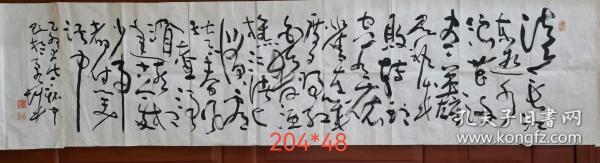 滚滚长江
东逝水
浪花淘
尽英雄
是非成
败转头
空青山
依旧在几
度夕阳
红白发渔
樵江渚上
惯看秋
月春风
一壶浊
酒喜相
逢古今多
少事
都付笑
谈中
204*48
孔夫子旧书网
www.kongfz.com